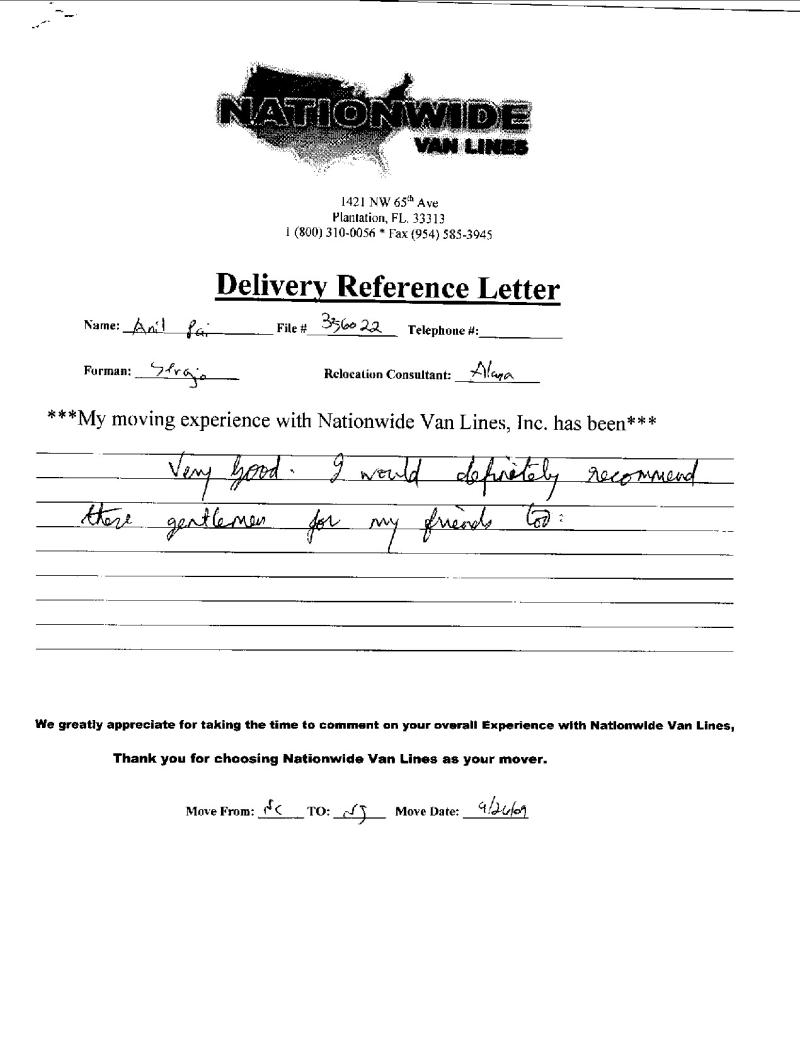 NATIONWIDE
VAN LINES
1421 NW 65th Ave
Plantation, FL. 33313
1 (800) 310-0056 * Fax (954) 585-3945
Delivery Reference Letter
Name: Anil Pai File # 356022 Telephone #:
Forman: Sergio Relocation Consultant: Alana
***My moving experience with Nationwide Van Lines, Inc. has been***
Very Good. I would definitely recommend
these gentlemen for my friends too.
We greatly appreciate for taking the time to comment on your overall Experience with Nationwide Van Lines,
Thank you for choosing Nationwide Van Lines as your mover.
Move From: NC TO: NJ Move Date: 9/26/09